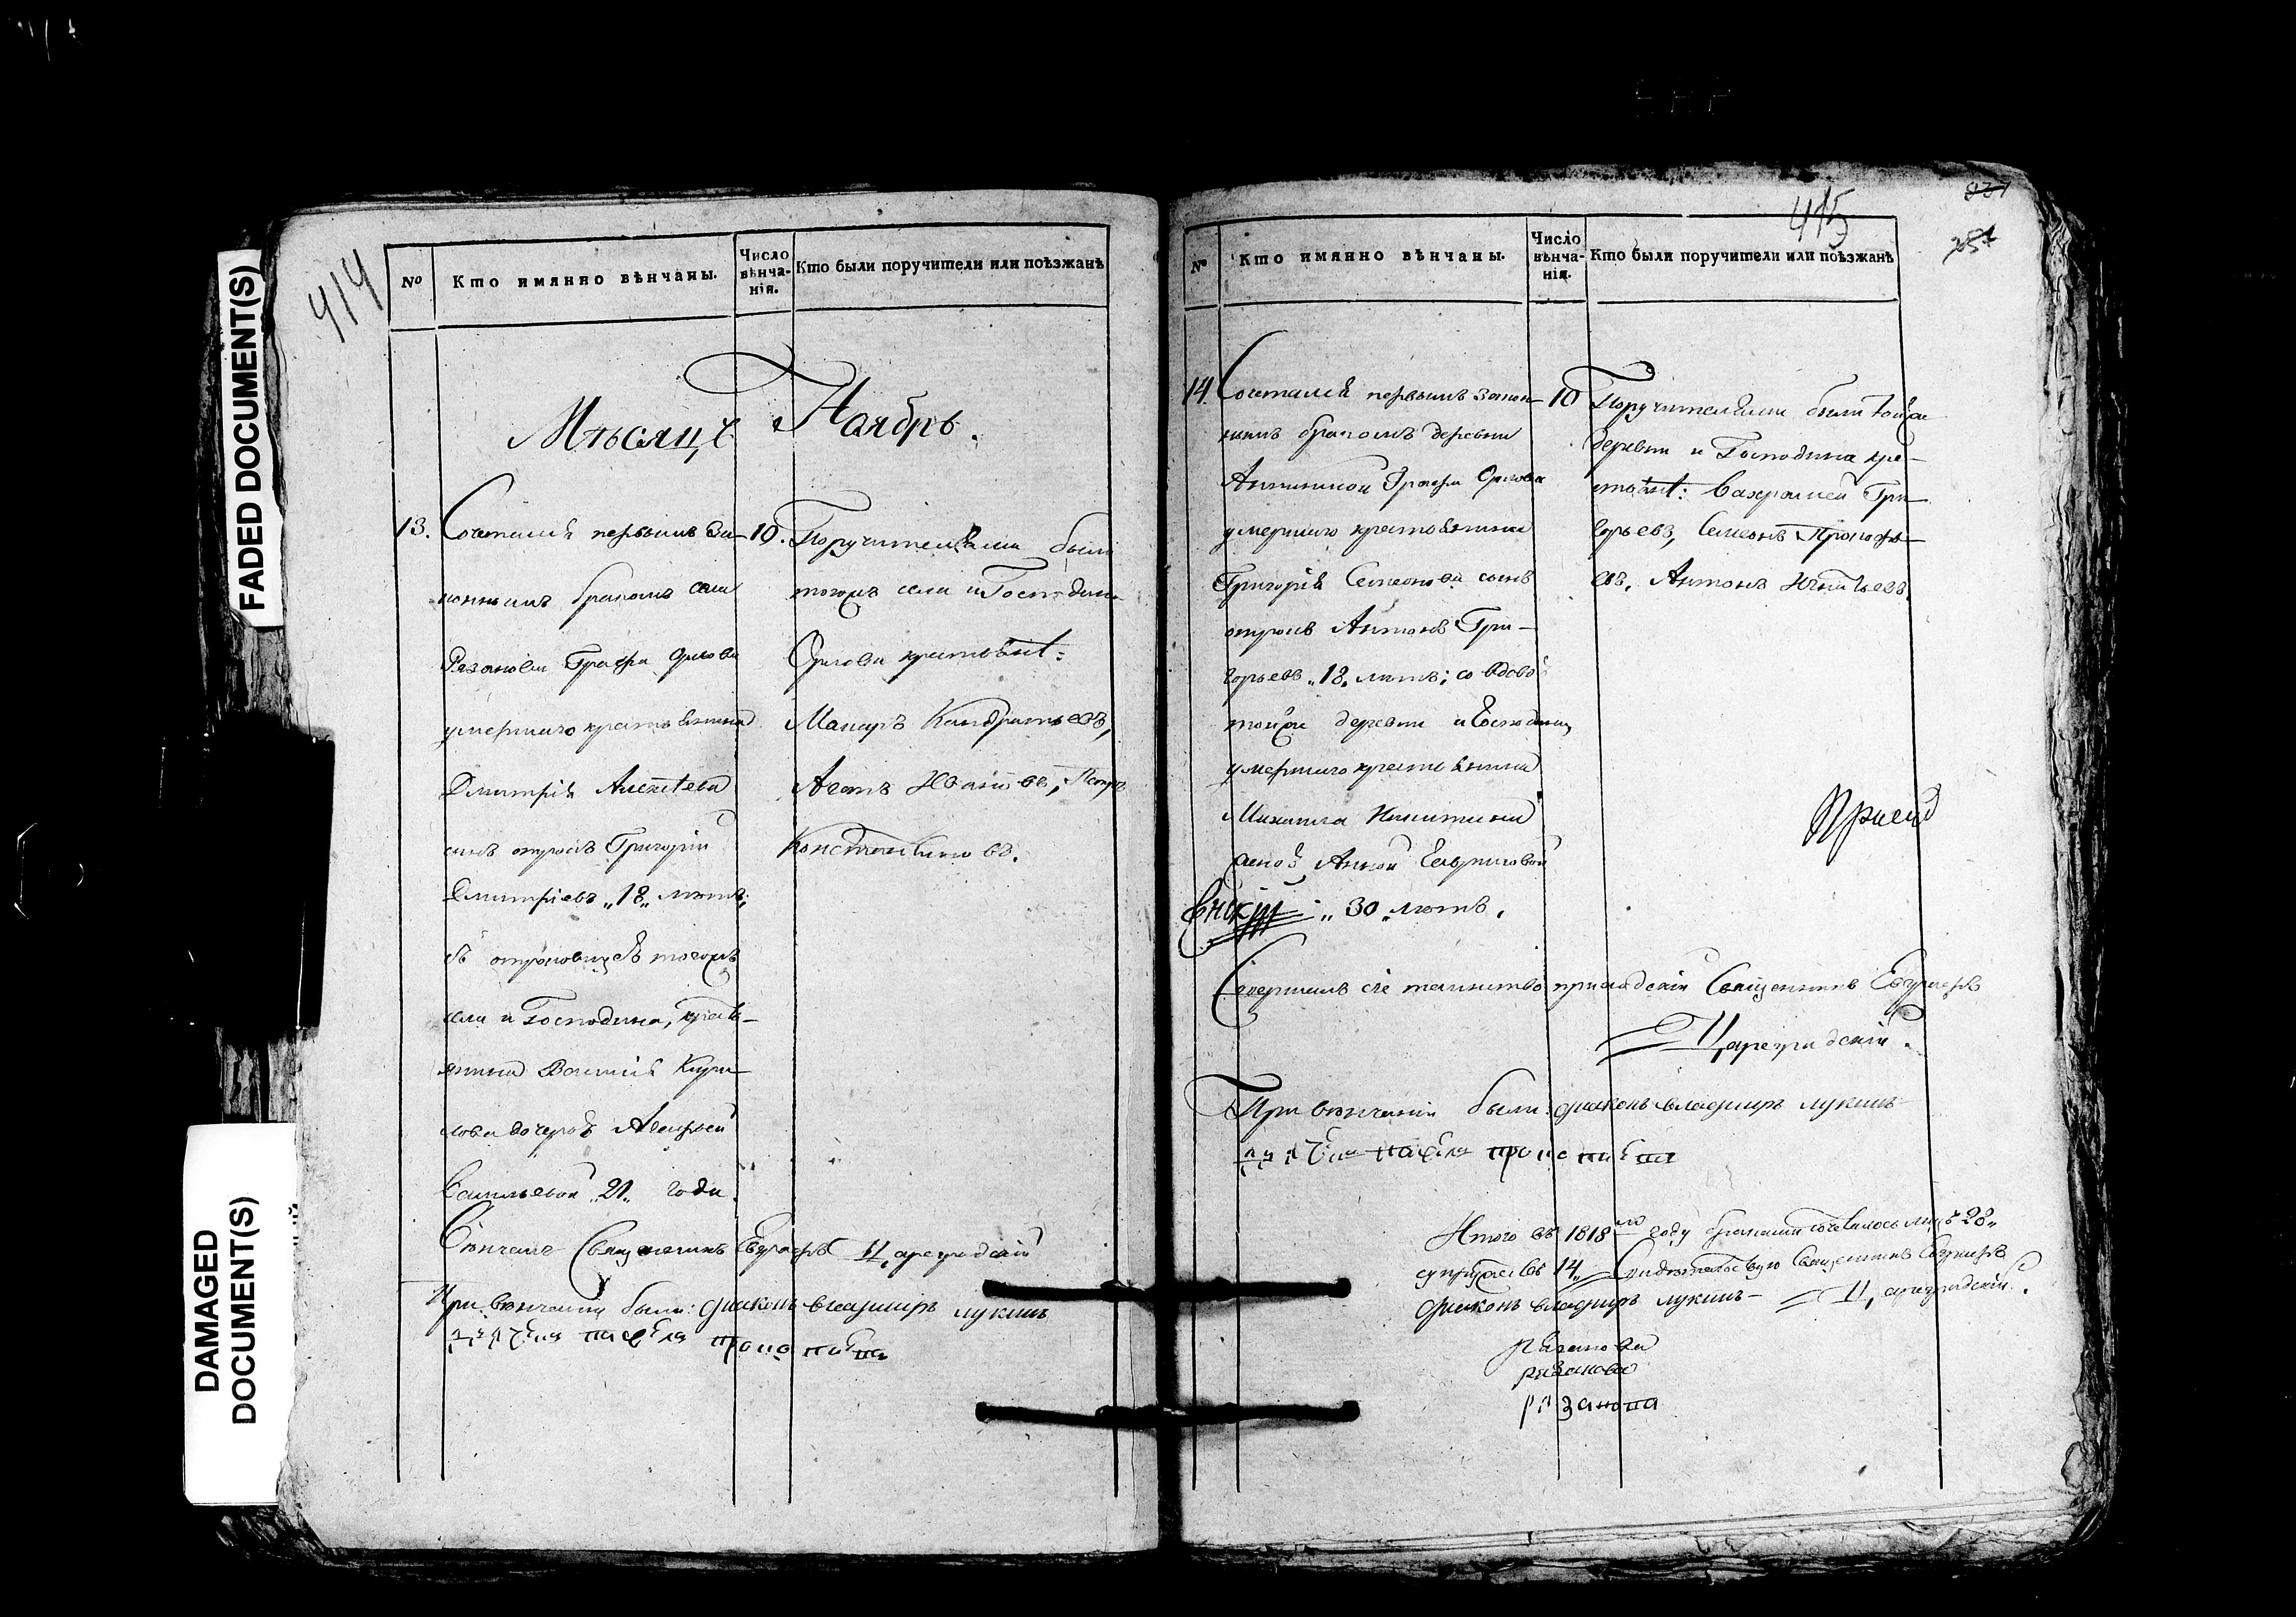 FADED DOCUMENT(S)
DAMAGED DOCUMENT(S)
414
№
Кто имянно вѣнчаны.
Число вѣнча-
нія.
Кто были поручители или поѣзжанѣ
Мѣсяцъ Ноябрь.
13.
Сочетался первымъ за-
коннымъ бракомъ села
Рязанова Графа Орлова
умершаго крестьянина
Дмитрія Алексѣева
сынъ отрокъ Григорій
Дмитріевъ „18„ лѣтъ;
съ отроковицею тогожъ
села и Господина, кресть-
янина Василія Кири-
лова дочерью
Васильевой „21„ года.
10.
Поручителями были
тогожъ села и Господина
Орлова крестьянѣ:
Макаръ Кондратьевъ,
Ивановъ, Петръ
Константиновъ.
Вѣнчалъ Священникъ Евграфъ Цареградскій
При вѣнчаніи были: диаконъ владимиръ лукинъ
415
№
Кто имянно вѣнчаны.
Число вѣнча-
нія.
Кто были поручители или поѣзжанѣ
14.
Сочетался первымъ закон-
нымъ бракомъ деревни
Графа Орлова
умершаго крестьянина
Григорія Семенова сынъ
отрокъ Антонъ Гри-
горьевъ „18„ лѣтъ; со вдовой
тойже деревни и Господина
умершаго крестьянина
Михаила Никитина
женой Анной
„30„ лѣтъ.
10
Поручителями были тойже
деревни и Господина кре-
стьянѣ: Вахрамей Гри-
горьевъ, Семенъ Прокофь-
евъ, Антонъ Игнатьевъ.
Совершилъ сіе таинство приходскій Священникъ Евграфъ
Цареградскій.
При вѣнчаніи были: диаконъ владимиръ лукинъ
Итого въ 1818мъ году бракомъ сочеталось лицъ 28„
супружествъ 14„ Свидѣтельствую Священникъ Евграфъ
диаконъ владимиръ лукинъ Цареградскій.
рязанова
рязанова
рязанова